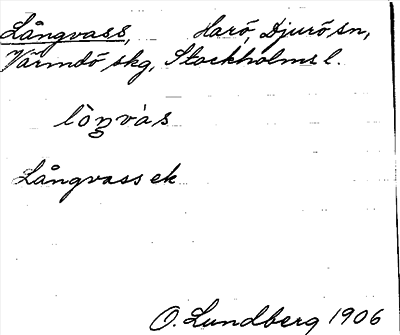 Långvass, Harö, Djurö sn,
Värmdö skg, Stockholms l.
lòŋvàs
Långvass ek
O. Lundberg 1906